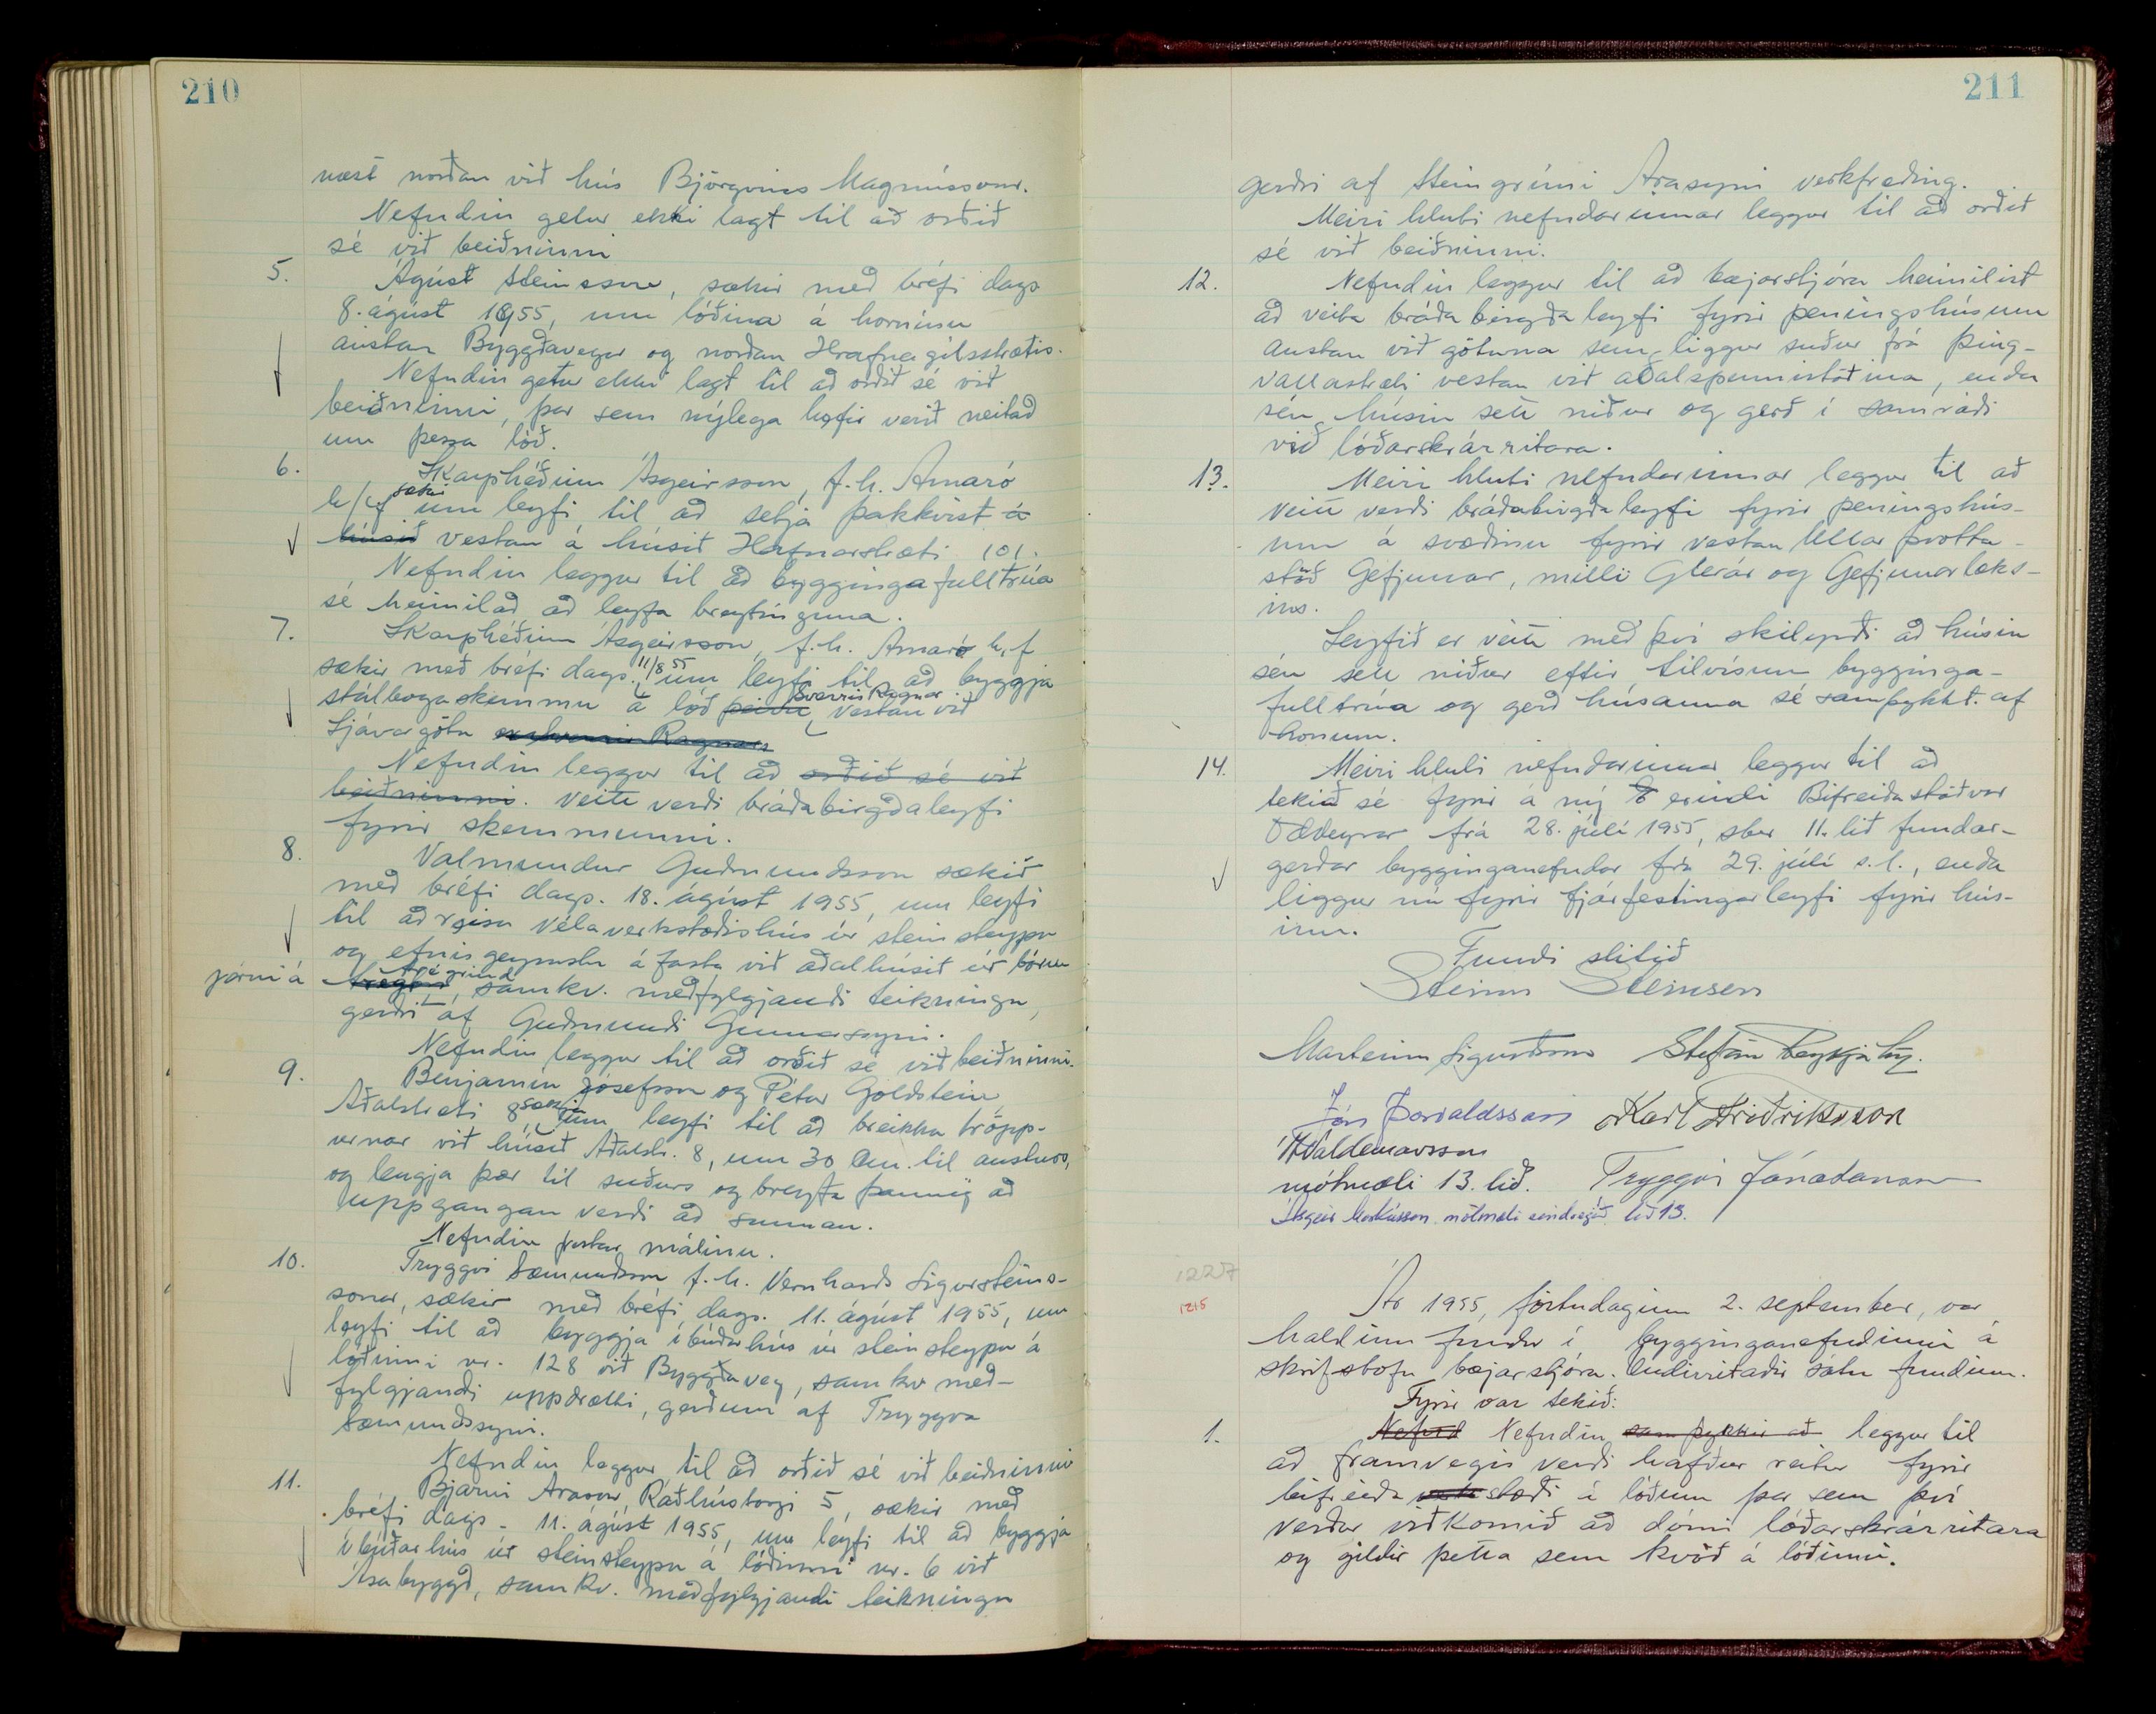 210
næst norðan við hús Björgvins Magnússonr.
Nefndin getur ekki lagt til að orðið
sé við beiðninni
5. Ágúst Steinsson, sækir með bréfi dags
8. ágúst 1955, um lóðina á horninu
austan Byggðavegar og norðan Hrafnagilsstrætis.
Nefndin getur ekki lagt til að orðið sé við
beiðninni, þar sem nýlega hefir verið neitað
um þessa lóð.
6. Skarphéðinn Ásgeirsson, f.h. Amaró
h/f sækir um leyfi til að setja þakkvist á
húsið vestan á húsið Hafnarstræti 101.
Nefndin leggur til að byggingafulltrúa
sé heimilað að leyfa breytinguna.
7. Skarphéðinn Ásgeirsson, f.h. Amaró h.f
sækir með bréfi dags. 11/8 55 um leyfi til að byggja
stálbogaskemmu á lóð þeirri Sverris Ragnar vestan við
Sjávargötu Ragnars
Nefndin leggur til að orðið sé við
beiðninni. Veitt verði bráðabirgðaleyfi
fyrir skemmunni.
8. Valmundur Guðmundsson sækir
með bréfi dags. 18. ágúst 1955, um leyfi
til að reisa vélaverkstæðishús úr steinsteypu
og efnisgeymslu áfasta við aðalhúsið úr báru
járni á trégrind, samkv. meðfylgjandi teikningu,
gerðri af Guðmundi Gunnarssyni.
Nefndin leggur til að orðið sé við beiðninni.
9. Benjamín Jósefsson og Pétur Goldstein
Aðalstræti 8, sækja um leyfi til að breikka tröpp-
urnar við húsið Aðalstr. 8, um 30 cm. til austurs,
og lengja þær til suðurs og breyta þannig að
uppgangan verði að sunnan.
Nefndin frestar málinu.
10. Tryggvi Sæmundsson f.h. Vernharðs Sigursteins-
sonar, sækir með bréfi dags. 11. ágúst 1955, um
leyfi til að byggja íbúðarhús úr steinsteypu á
lóðinni nr. 128 við Byggðaveg, samkv með-
fylgjandi uppdrætti, gerðum af Tryggva
Sæmundssyni.
Nefndin leggur til að orðið sé við beiðninni
11. Bjarni Arason, Ráðhústorgi 5, sækir með
bréfi dags. 11. ágúst 1955, um leyfi til að byggja
íbúðarhús úr steinsteypu á lóðinni nr. 6 við
Ásabyggð, samkv. meðfylgjandi teikningu
211
gerðri af Steingrími Arasyni verkfræðing.
Meiri hluti nefndarinnar leggur til að orðið
sé við beiðninni.
12. Nefndin leggur til að bæjarstjóra heimilist
að veita bráðabirgðaleyfi fyrir peningshúsum
austan við götuna sem liggur suður frá Þing-
vallastræti vestan við aðalspennistöðina, enda
séu húsin sett niður og gerð í samráði
við lóðarskrárritara.
13. Meiri hluti nefndarinnar leggur til að
veitt verði bráðabirgðaleyfi fyrir peningshús-
um á svæðinu fyrir vestan Ullarþvotta-
stöð Gefjunar, milli Glerár og Gefjunarlæks-
ins.
Leyfið er veitt með því skilyrði að húsin
séu sett niður eftir tilvísun bygginga-
fulltrúa og gerð húsanna sé samþykkt af
honum.
14. Meiri hluti nefndarinnar leggur til að
tekið sé fyrir á ný erindi Bifreiðastöðvar
Oddeyrar frá 28. júlí 1955, sbr 11. lið fundar-
gerðar bygginganefndar frá 29. júlí s.l., enda
liggur nú fyrir fjárfestingarleyfi fyrir hús-
inu.
Fundi slitið
Steinn Steinsen
Marteinn Sigurðsson Stefán Reykjalín.
Jón Þorvaldsson Karl Friðriksson
Valdemarsson
mótmæli 13. lið. Tryggvi Jónatansson
Ásgeir Markússon mótmæli eindregið lið 13.
1227
1215
Ár 1955, föstudaginn 2. september, var
haldinn fundur í bygginganefndinni á
skrifstofu bæjarstjóra. Undirritaðir sátu fundinn.
Fyrir var tekið:
1. Nefnd Nefndin samþykkir að leggur til
að framvegis verði hafður reitur fyrir
bifreiðastæði í lóðum þar sem því
verður viðkomið að dómi lóðarskrárritara
og gildir þetta sem kvöð á lóðinni.